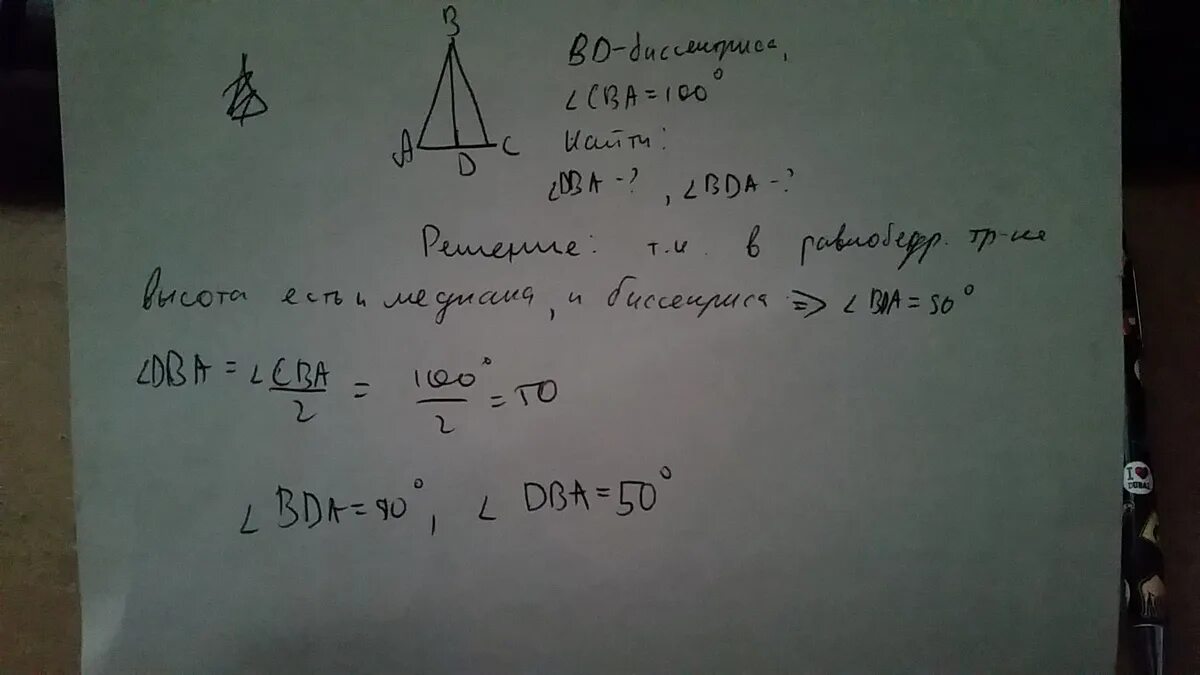 B
A
D
C
BD-биссектриса,
∠CBA=100°
Найти:
∠DBA-?, ∠BDA-?
Решение: т.к. в равнобедр. тр-ке
высота есть и медиана, и биссектриса => ∠BDA=90°
∠DBA = ∠CBA/2 = 100°/2 = 50
∠BDA=90°, ∠DBA=50°
I ❤ DUBAI